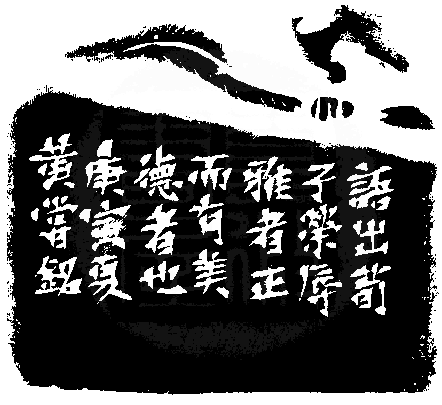 語出荀
子榮辱
雅者正
而有美
德者也
庚寅夏
黃嘗銘